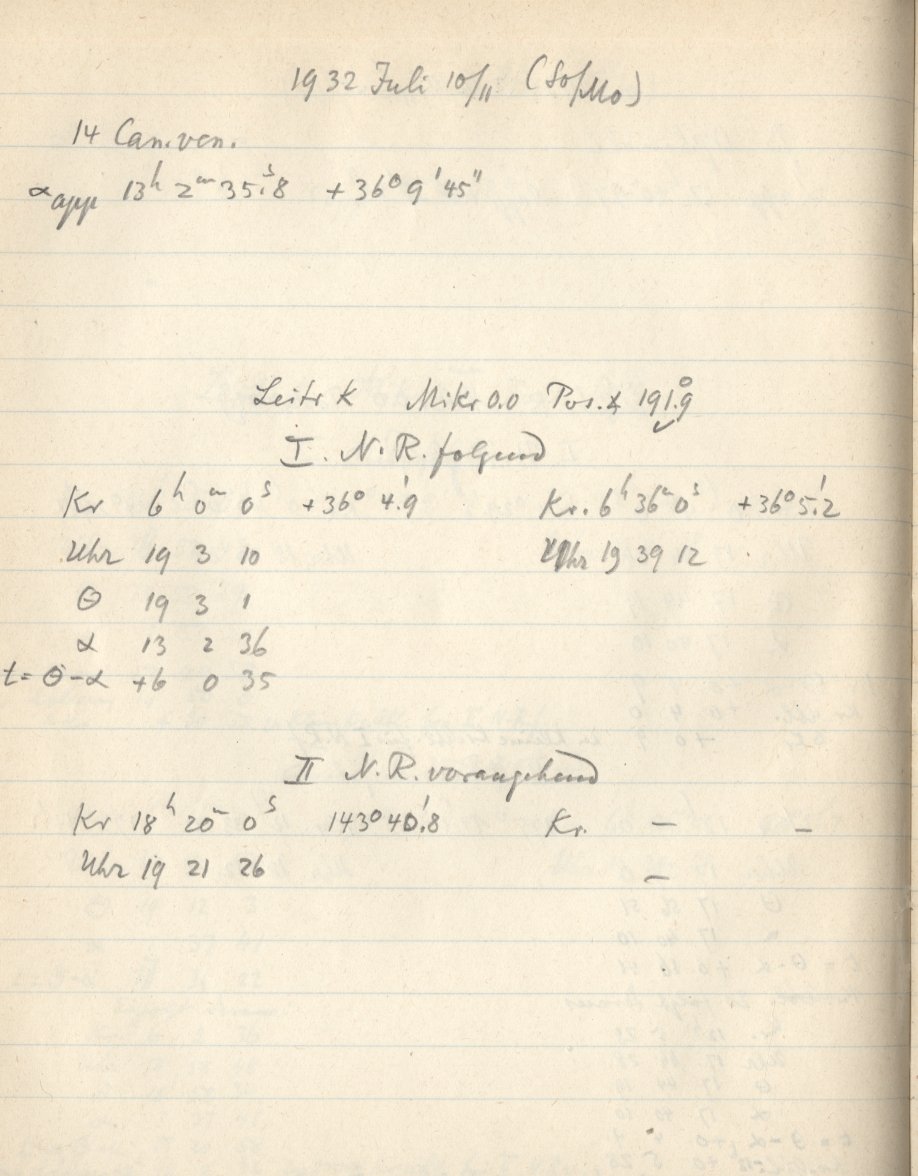 1932 Juli 10/11 (So/Mo)
14 Can. ven.
α app 13h 2m 35.s8 +36° 9' 45"
Leitr K Mikr 0.0 Pos. ∡ 191.°9
I. N. R. folgend
Kr 6h 0m 0s +36° 4.'9 Kr. 6h 36m 0s +36° 5.'2
Uhr 19 3 10 Uhr 19 39 12
Θ 19 3 1
α 13 2 36
t = Θ-α +6 0 35
II N. R. vorangehend
Kr 18h 20m 0s 143° 40.'8 Kr. — —
Uhr 19 21 26 —